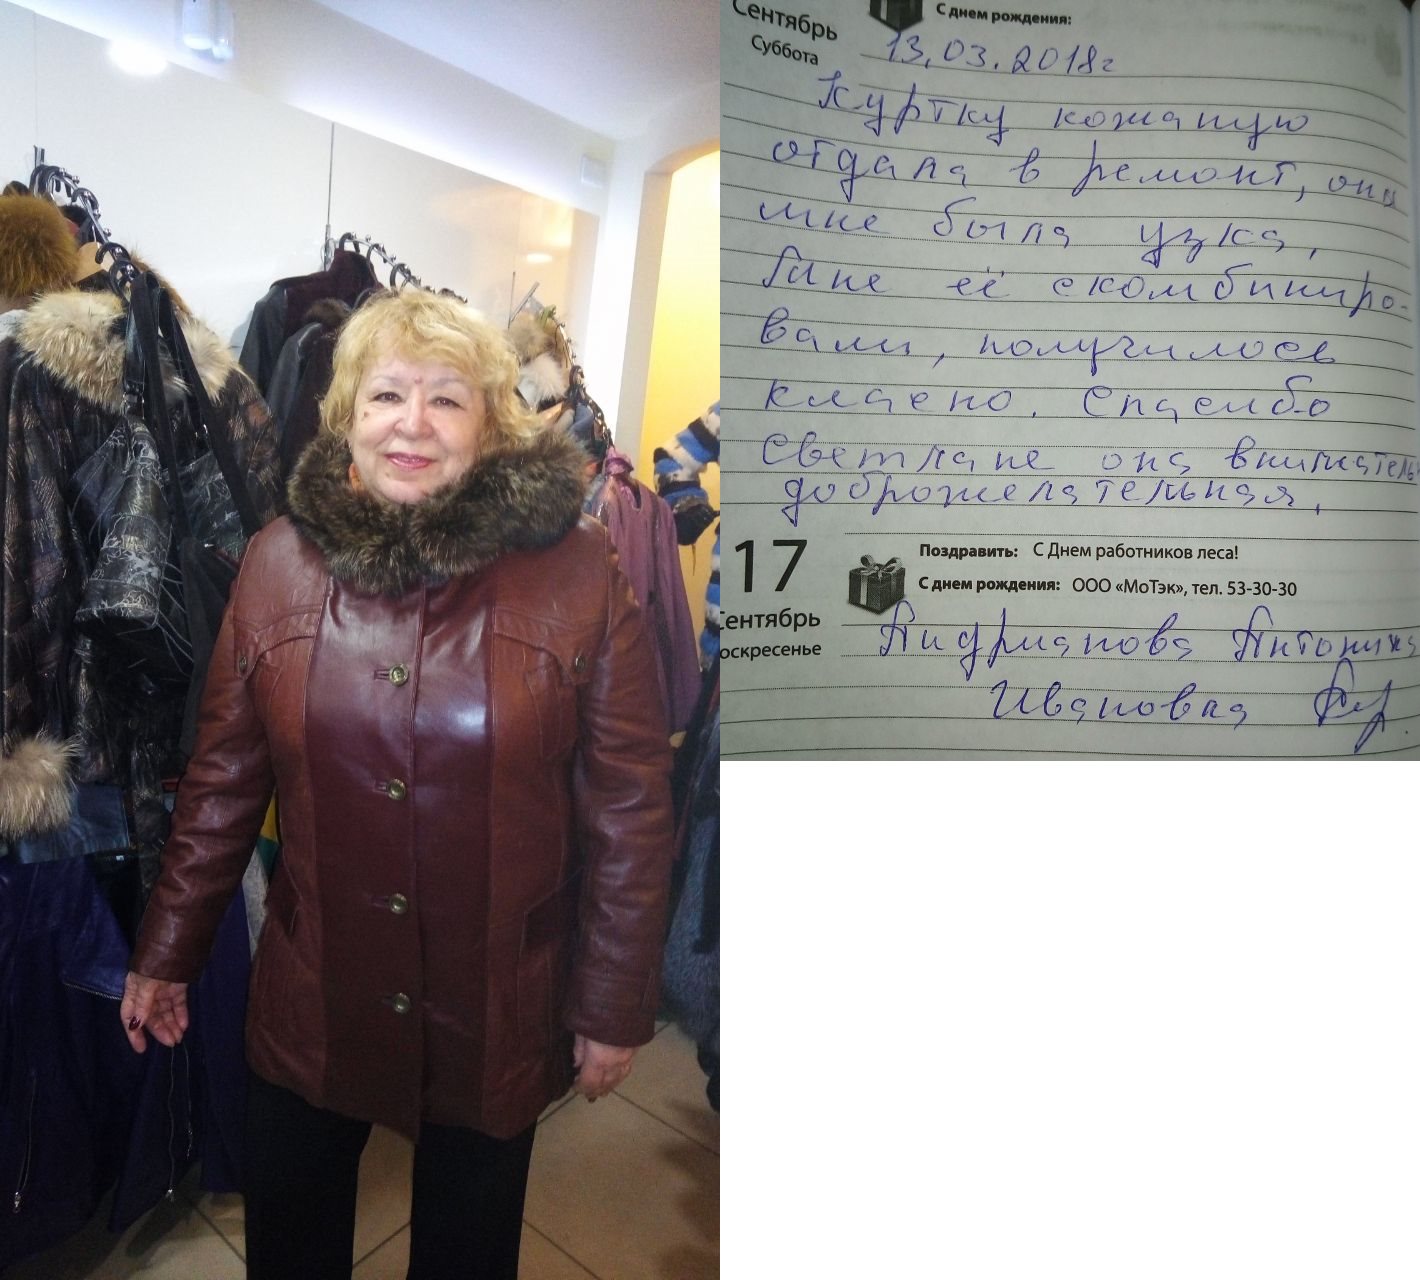 Сентябрь
Суббота
С днем рождения:
13.03.2018г
Куртку кожаную
отдала в ремонт, она
мне была узка,
мне её скомбиниро-
вали, получилось
класно. Спасибо
Светлане она внимательн
доброжелательная,
17
Сентябрь
оскресенье
Поздравить: С Днем работников леса!
С днем рождения: ООО «МоТэк», тел. 53-30-30
Андрианова Антонина
Ивановна